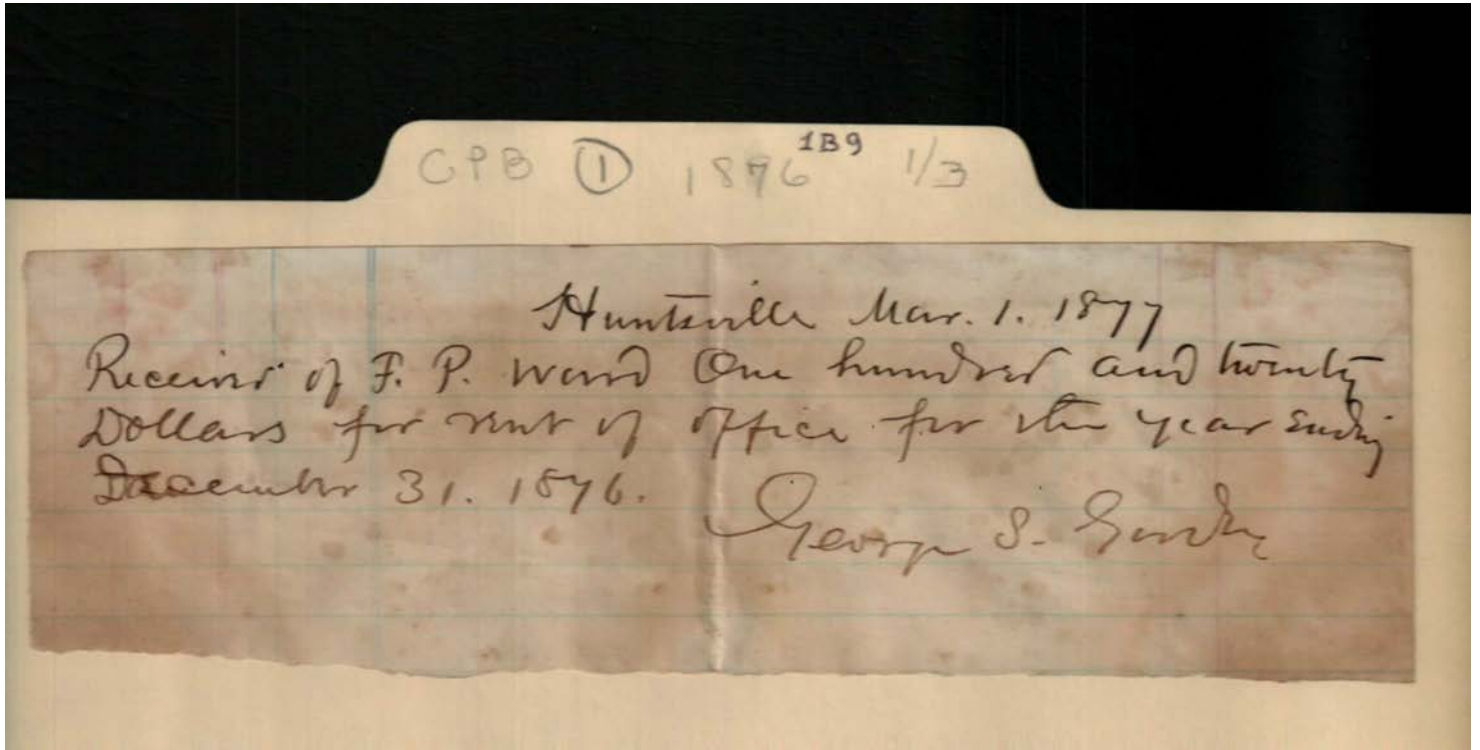 CPB ① 1876 1B9 1/3
Huntsville Mar. 1. 1877
Received of F. P. Ward One hundred and twenty
Dollars for rent of office for the year ending
December 31. 1876.
George S. Gordon